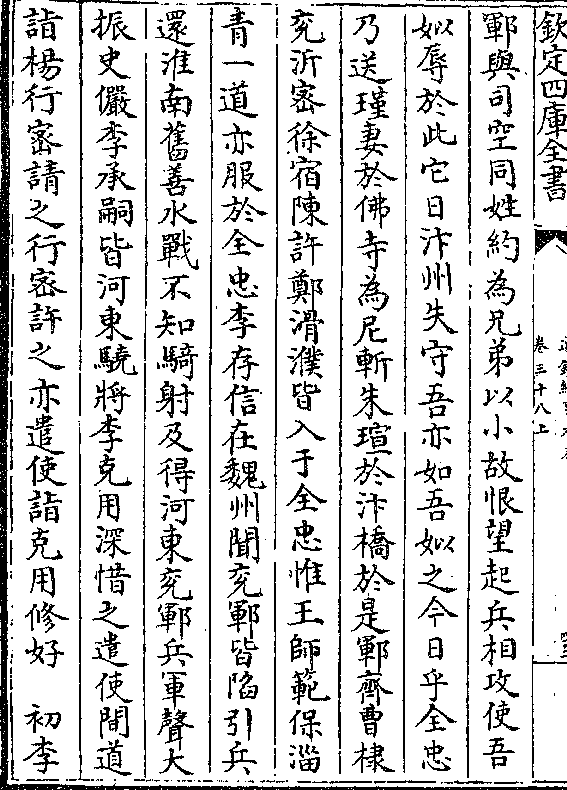 欽定四庫全書
卷三十八上
鄆與司空同姓約為兄弟以小故恨望起兵相攻使吾
姒辱於此它日汴州失守吾亦如吾姒之今日乎全忠
乃送瑾妻於佛寺為尼斬朱瑄於汴橋於是鄆齊曹棣
兖沂密徐宿陳許鄭滑濮皆入于全忠惟王師範保淄
青一道亦服於全忠李存信在魏州聞兖鄆皆陷引兵
還淮南舊善水戰不知騎射及得河東兖鄆兵軍聲大
振史儼李承嗣皆河東驍將李克用深惜之遣使間道
詣楊行密請之行密許之亦遣使詣克用修好　初李